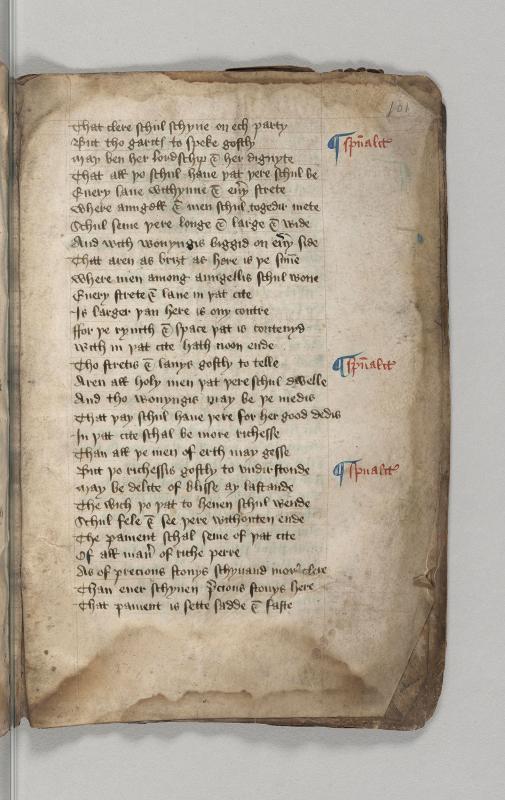 101
That clere schul schyne on ech party
But tho garites to speke gostly
¶ sp̄ualit
May ben her lordschip & her dignyte
That all þo schul haue þat þere schul be
Euery lane withynne & eu̅y strete
Where aungell & men schul togedir mete
Schul seme þere longe & large & wide
And with wonyngis biggid on eu̅y side
That aren as briȝt as here is þe sūne
Where men among aungellis schul wone
Euery strete & lane in þat cite
Is larger þan here is ony contre
Ffor þe rymth & space þat is contenyd
With in þat cite hath noon ende
Tho stretis & lanys gostly to telle
¶ sp̄ualit
Aren all holy men þat þere schul dwelle
And tho wonyngis may be þe medis
That þay schul haue þere for her good dedis
In þat cite schal be more richesse
Than all þe men of erth may gesse
But þo richessis gostly to vndirstonde
¶ sp̄ualit
May be delite of blisse ay lastande
The wich þo þat to heuen schul wende
Schul fele & see þere withouten ende
The pament schal seme of þat cite
Of all man̄ of riche perre
As of precious stonys schynand more clere
Than euer schynen p̄cious stonys here
That pament is sette sadde & faste